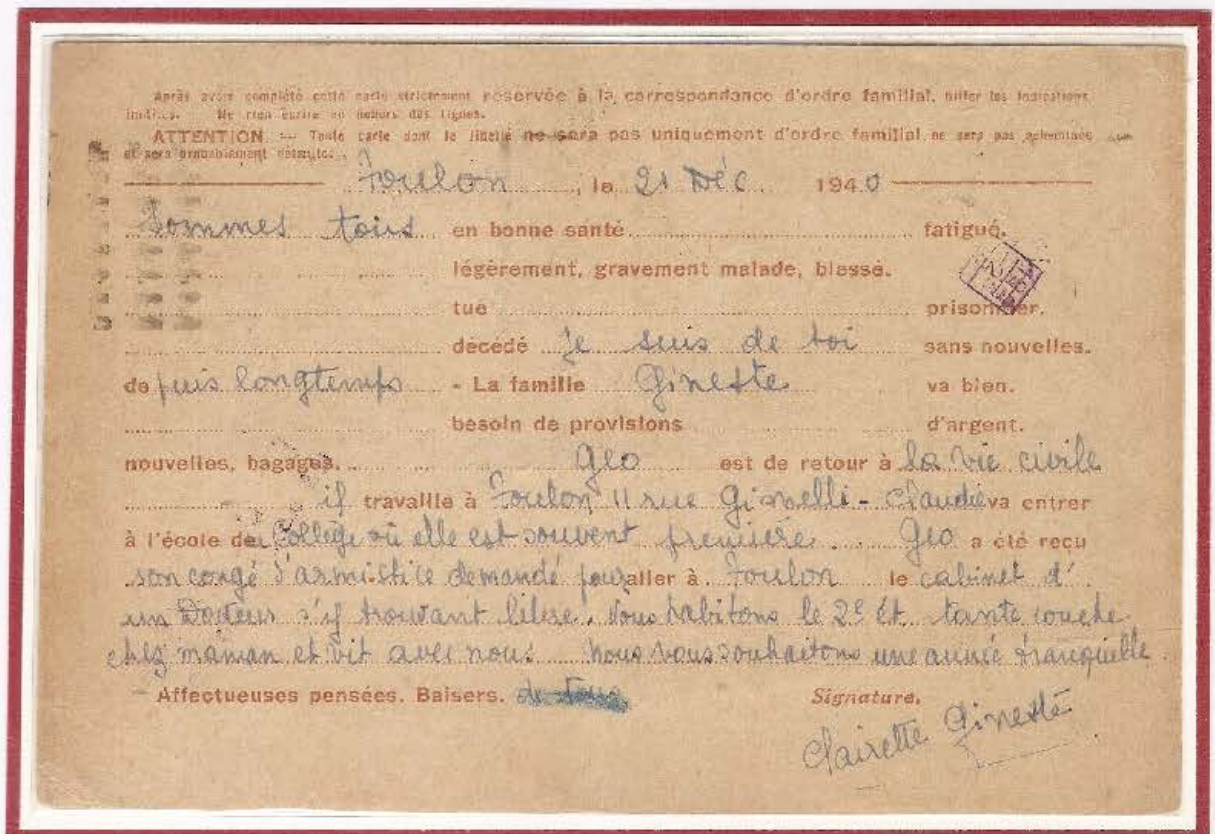 Après avoir complété cette carte strictement réservée à la correspondance d'ordre familial, biffer les indications
inutiles. — Ne rien écrire en dehors des lignes.
ATTENTION. — Toute carte dont le libellé ne sera pas uniquement d'ordre familial ne sera pas acheminée
et sera probablement détruite.
Toulon, le 21 Déc 1940
Sommes tous en bonne santé fatigué.
légèrement, gravement malade, blessé.
tué prisonnier.
décédé Je suis de toi sans nouvelles.
de puis longtemps - La famille Gineste va bien.
besoin de provisions d'argent.
nouvelles, bagages. Geo est de retour à la vie civile
il travaille à Toulon 11 rue Gimelli - Claudie va entrer
à l'école de Collège où elle est souvent première Geo a été reçu
son congé d'armistice demandé pour aller à Toulon le cabinet d'
un Docteur s'y trouvant libere. Nous habitons le 2e ét tante couche
chez maman et vit avec nous Nous vous souhaitons une année tranquille
Affectueuses pensées. Baisers. de tous Signature.
Clairette Gineste